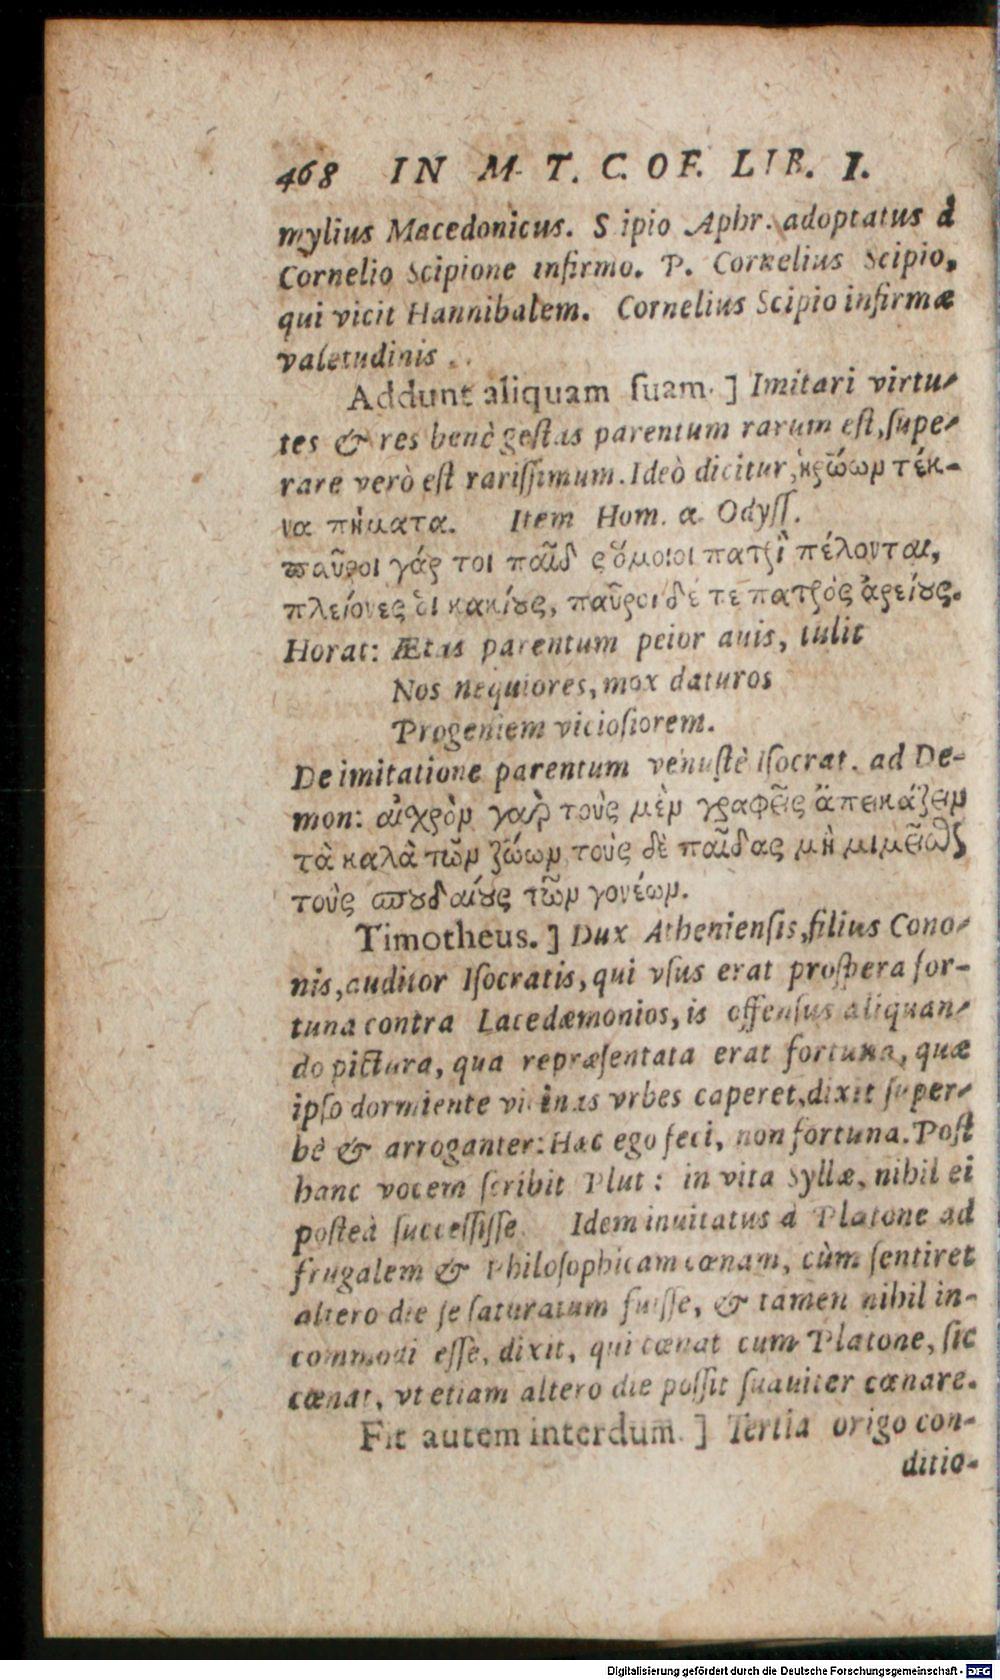 468 IN M. T. C. OF. LIB. I.
mylius Macedonicus. S ipio Aphr. adoptatus à
Cornelio Scipione infirmo. P. Cornelius Scipio,
qui vicit Hannibalem. Cornelius Scipio infirmæ
valetudinis .
Addunt aliquam ſuam. ] Imitari virtu-
tes & res benè geſtas parentum rarum eſt, ſupe-
rare verò eſt rariſſimum. Ideò dicitur, ἡρώωμ τέκ-
να πήματα. Item Hom. α. Odyſſ.
παῦροι γάρ τοι παῖδ ς ὅμοιοι πατρὶ πέλονται,
πλείονες δι κακίους, παῦροι δέ τε πατρὸς ἀρείους.
Horat: Ætas parentum peior auis, tulit
Nos nequiores, mox daturos
Progeniem vicioſiorem.
De imitatione parentum venuſtè Iſocrat. ad De-
mon: αἰχρὸμ γαρ τοὺς μὲμ γραφεῖς ἀπεικάζειμ
τὰ καλὰ τῶμ ζώωμ, τοὺς δὲ παῖδας μὴ μιμεῖσθαι
τοὺς σπουδαίους τῶμ γονέωμ.
Timotheus. ] Dux Athenienſis, filius Cono-
nis, auditor Iſocratis, qui vſus erat proſpera for-
tuna contra Lacedæmonios, is offenſus aliquan-
do pictura, qua repræſentata erat fortuna, quæ
ipſo dormiente vicinas vrbes caperet, dixit ſuper-
bè & arroganter: Hac ego feci, non fortuna. Poſt
hanc vocem ſcribit Plut: in vita Syllæ, nihil ei
poſteà ſucceſſiſſe. Idem inuitatus à Platone ad
frugalem & Philoſophicam cœnam, cùm ſentiret
altero die ſe ſaturatum fuiſſe, & tamen nihil in-
commodi eſſe, dixit, qui cœnat cum Platone, ſic
cœnat, vt etiam altero die poſſit ſuauiter cœnare.
Fit autem interdum. ] Tertia origo con-
ditio-
Digitalisierung gefördert durch die Deutsche Forschungsgemeinschaft - DFG